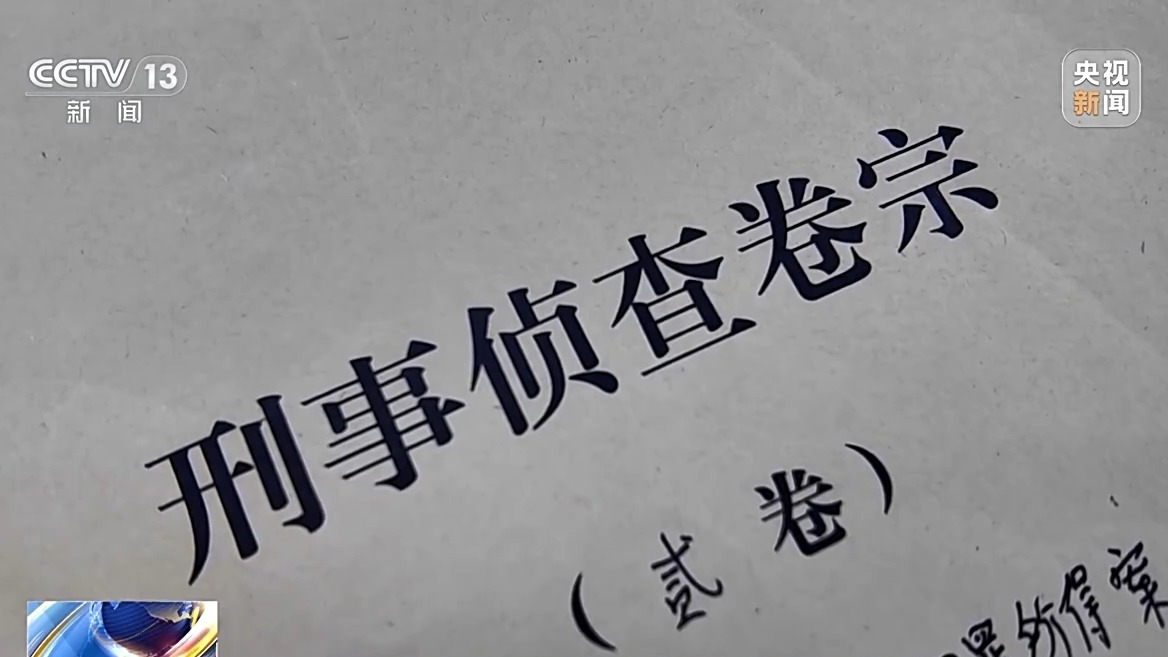 CCTV 13
新闻
央视
新闻
刑事侦查卷宗
(贰卷)
得案